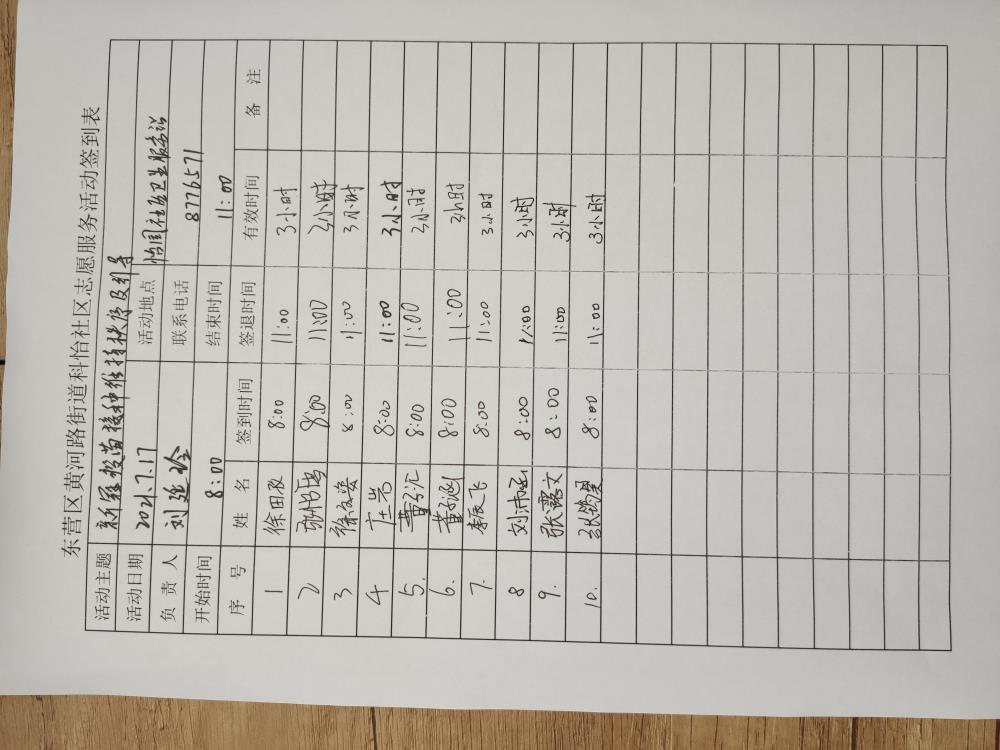 东营区黄河路街道科怡社区志愿服务活动签到表
活动主题 新冠疫苗接种维持秩序及引导
活动日期 2021.7.17 活动地点 怡园社区卫生服务站
负责人 刘延玲 联系电话 8776571
开始时间 8:00 结束时间 11:00
序号 姓名 签到时间 签退时间 有效时间 备注
1 徐田 8:00 11:00 3小时
2 8:00 11:00 3小时
3 徐 8:00 11:00 3小时
4 庄岩 8:00 11:00 3小时
5. 董子汇 8:00 11:00 3小时
6. 董子涵 8:00 11:00 3小时
7. 飞 8:00 11:00 3小时
8 刘沛涵 8:00 11:00 3小时
9. 张露文 8:00 11:00 3小时
10. 张 8:00 11:00 3小时